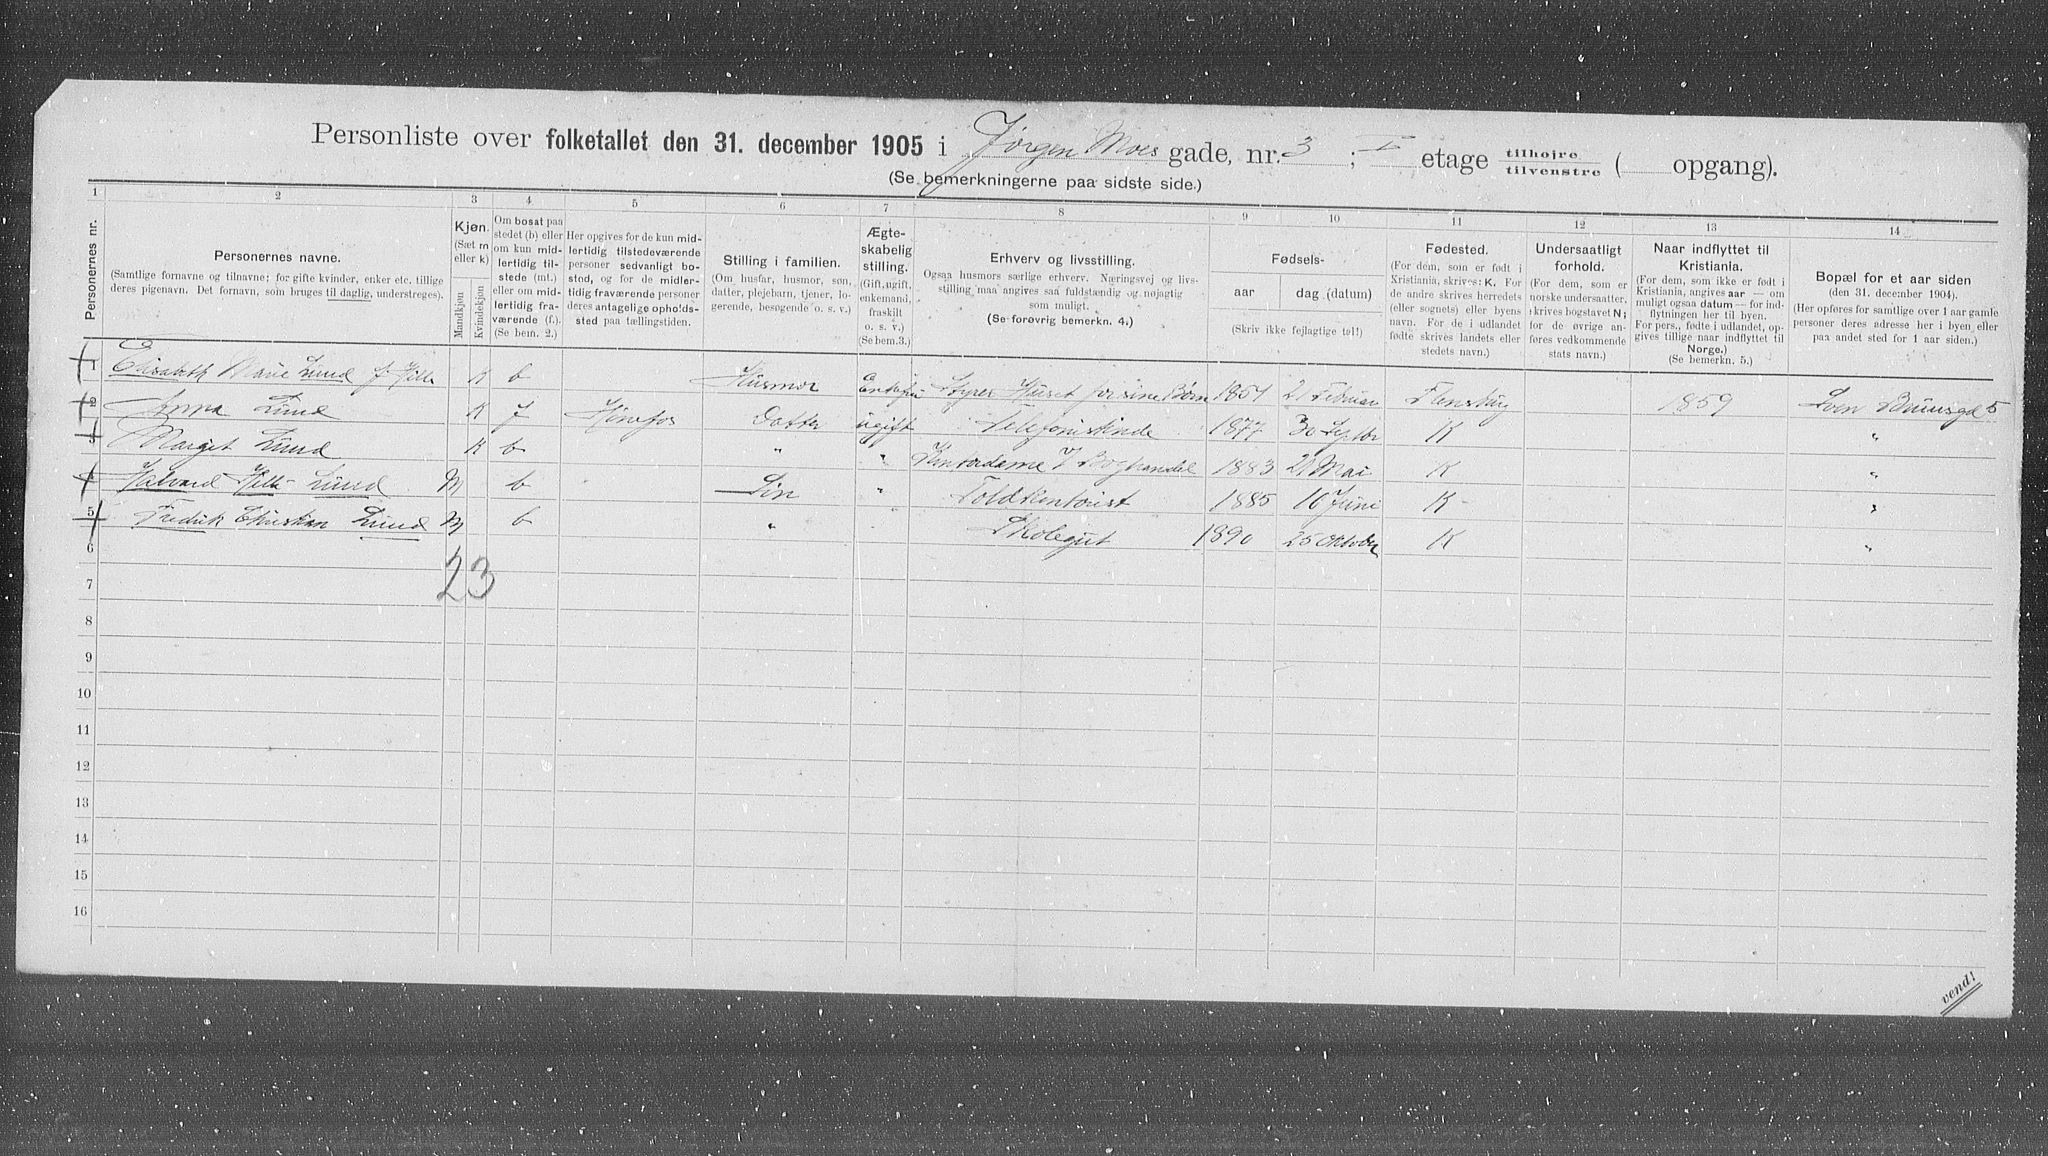 Personliste over folketallet den 31. december 1905 i Jørgen Moes gade, nr. 3 ; I etage tilhøjre tilvenstre ( opgang).
(Se bemerkningerne paa sidste side.)
1 2 3 4 5 6 7 8 9 10 11 12 13 14
Personernes nr.
Personernes navne.
(Samtlige fornavne og tilnavne; for gifte kvinder, enker etc. tillige deres pigenavn. Det fornavn, som bruges til daglig, understreges).
Kjøn.
(Sæt m eller k)
Mandkjøn
Kvindekjøn
Om bosat paa stedet (b) eller om kun midlertidig tilstede (mt.) eller om midlertidig fraværende (f.).
(Se bem. 2.)
Her opgives for de kun midlertidig tilstedeværende personer sedvanligt bosted, og for de midlertidig fraværende personer deres antagelige opholdssted paa tællingstiden.
Stilling i familien.
(Om husfar, husmor, søn, datter, plejebarn, tjener, logerende, besøgende o. s. v.)
Ægteskabelig stilling.
(Gift, ugift, enkemand, fraskilt o. s. v.)
(Se bem. 3.)
Erhverv og livsstilling.
Ogsaa husmors særlige erhverv. Næringsvej og livsstilling maa angives saa fuldstændig og nøjagtig som muligt.
(Se forøvrig bemerkn. 4.)
Fødsels-
aar
dag (datum)
(Skriv ikke fejlagtige tal!)
Fødested.
(For dem, som er født i Kristiania, skrives: K. For de andre skrives herredets (eller sognets) eller byens navn. For de i udlandet fødte skrives landets eller stedets navn.)
Undersaatligt forhold.
(For dem, som er norske undersaatter, skrives bogstavet N; for de øvrige anføres vedkommende stats navn.)
Naar indflyttet til Kristiania.
(For dem, som ikke er født i Kristiania, angives aar — om muligt ogsaa datum — for indflytningen her til byen.
For pers., fødte i udlandet, opgives tillige naar indflyttet til Norge.)
(Se bemerkn. 5.)
Bopæl for et aar siden
(den 31. december 1904).
(Her opføres for samtlige over 1 aar gamle personer deres adresse her i byen, eller paa andet sted for 1 aar siden.)
1 Elisabeth Marie Lund f. Hille K b Husmor Enkefru Styrer Huset for sine Børn 1851 21 Februar Flensburg 1859 Sven Bruunsgd 5
2 Anna Lund K f Hønefos Datter ugift Telefonistinde 1877 30 Septbr K "
3 Margit Lund K b " " Kontordame i Boghandel 1883 21 Mai K "
4 Halvard Hille Lund M b Søn " Toldkontorist 1885 16 Juni K "
5 Fredrik Christian Lund M b " Skolegut 1890 25 Oktober K "
6
23
7
8
9
10
11
12
13
14
15
16
vend!